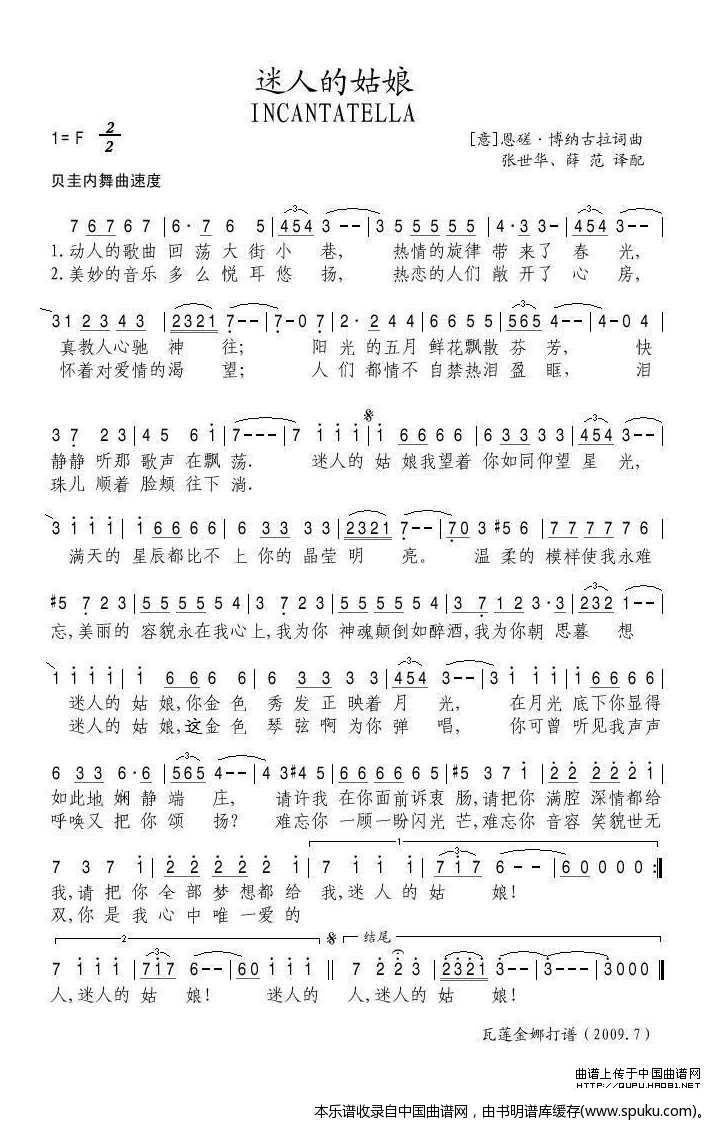 迷人的姑娘
INCANTATELLA
1= F 2/2
[意]恩磋·博纳古拉词曲
张世华、薛 范 译配
贝圭内舞曲速度
7 6 7 6 7 | 6· 7 6 5 | 454 3 -- | 3 5 5 5 5 5 | 4· 3 3- | 454 3 -- |
1.动人的歌曲 回 荡 大 街 小 巷, 热情的旋律 带 来 了 春 光,
2.美妙的音乐 多 么 悦 耳 悠 扬, 热恋的人们 敞 开 了 心 房,
31 2 3 4 3 | 2321 7 -- | 7-0 7 | 2· 2 4 4 | 6 6 5 5 | 565 4-- | 4-0 4 |
真教人心驰 神 往; 阳 光 的五月 鲜花飘散 芬 芳, 快
怀着对爱情的渴 望; 人 们 都情不 自禁热泪 盈 眶, 泪
3 7 2 3 | 4 5 6 1 | 7--- | 7 1 1 1 | 1 6 6 6 6 | 6 6 3 3 3 | 454 3-- |
静静 听那 歌声 在飘 荡. 迷人的 姑 娘我望着 你如同仰望 星 光,
珠儿 顺着 脸颊 往下 淌.
3 1 1 1 | 1 6 6 6 6 | 6 3 3 3 3 | 2321 7 -- | 70 3 #5 6 | 7 7 7 7 7 6 |
满天的 星辰都比不 上你的 晶莹 明 亮。 温 柔的 模样使我永难
#5 7 2 3 | 5 5 5 5 5 4 | 3 7 2 3 | 5 5 5 5 5 4 | 3 7 1 2 3· 3 | 232 1-- |
忘,美丽的 容貌永在我心上,我为你 神魂颠倒如醉酒,我为你朝 思暮 想
1 1 1 1 | 1 6 6 6 6 | 6 3 3 3 3 | 454 3 -- | 3 1 1 1 | 1 6 6 6 6 |
迷人的 姑 娘,你金色 秀 发正 映着 月 光, 在月光 底下你显得
迷人的 姑 娘,这金色 琴 弦啊 为你 弹 唱, 你可曾 听见我声声
6 3 3 6·6 | 565 4-- | 4 3 #4 5 | 6 6 6 6 6 | #5 3 7 1 | 2 2 2 2 2 |
如此地 娴 静 端 庄, 请许我 在你面前诉衷 肠,请把你 满腔 深情都给
呼唤又 把 你 颂 扬? 难忘你 一顾一盼闪光 芒,难忘你 音容 笑貌世无
1
7 3 7 1 | 2 2 2 2 2 1 | 7 1 1 1 | 717 6-- | 6 0 0 0 0 :‖
我,请 把 你 全 部 梦 想都 给 我,迷 人 的 姑 娘!
双,你 是 我 心 中 唯 一 爱 的
2 结尾
7 1 1 1 | 717 6-- | 60 1 1 1 ‖ 7 2 2 3 | 2321 3-- | 3--- | 3000 ‖
人,迷人的 姑 娘! 迷人的 人,迷人的 姑 娘!
瓦莲金娜打谱(2009.7)
曲谱上传于中国曲谱网
HTTP://QUPU.HAO81.NET
本乐谱收录自中国曲谱网，由书明谱库缓存(www.spuku.com)。